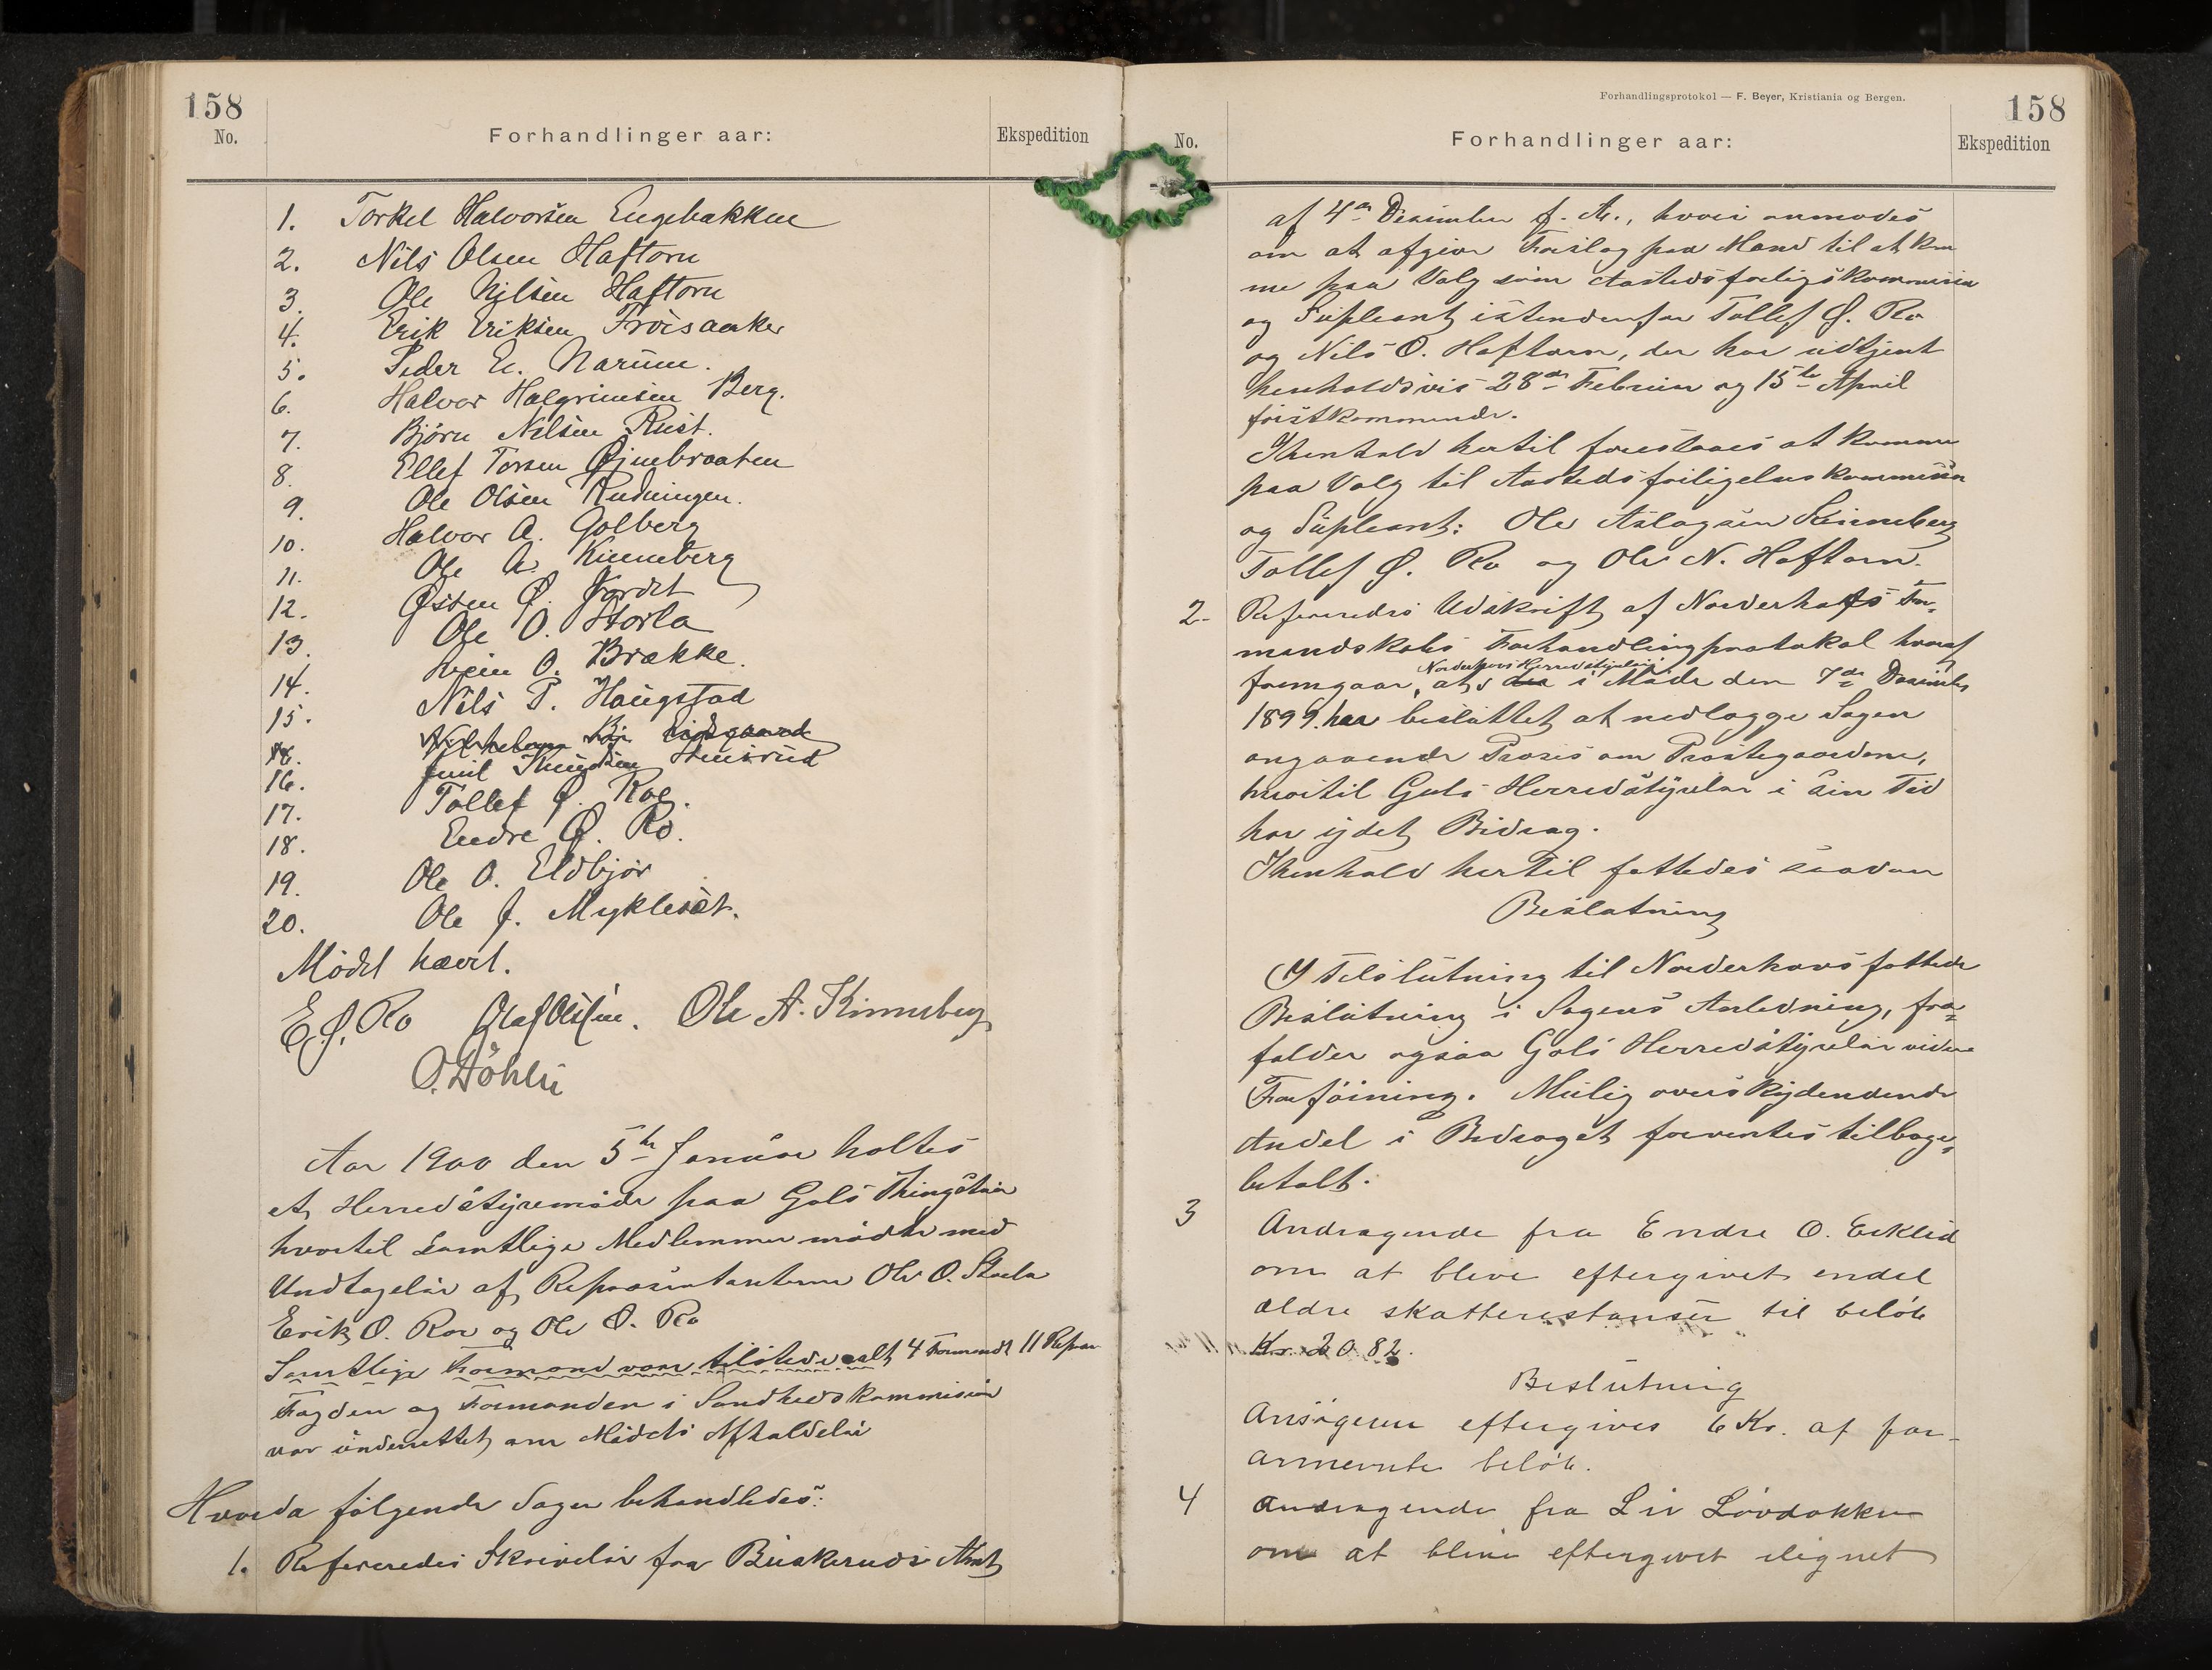 158
No.
Forhandlinger aar:
Ekspedition
1. Torkel Halvorsen Engebakken
2. Nils Olsen Haftorn
3. Ole Nilsen Haftorn
4. Erik Eriksen Froisaaker
5. Peder E. Narum.
6. Halvor Halgrimsen Berg.
7. Bjørn Nilsen Rust.
8. Ellef Torsen Øjnebraaten
9. Ole Olsen Rudningen.
10. Halvor A. Golberg
11. Ole A. Kinneberg
12. Østen Ø. Jordet
13. Ole O. Storla
14. Svein O. Brække.
15. Nils P. Haugstad
16. Emil Knudsen Stuvrud
17. Tollef Ø. Roe.
18. Endre Ø. Ro.
19. Ole O. Eldbjør
20. Ole J. Myklesæt.
Mødet hævet.
E. Ø. Ro Olaf Olsen. Ole A. Kinneberg
O. Døhlen
Aar 1900 den 5te Januar holtes
et Herredstyremøde paa Gols Thingstue
hvortil samtlige Medlemmer mødte med
Undtagelse af Repræsentanterne Ole O. Storla
Erik O. Roe og Ole Ø. Ro
Samtlige Formænd vare tilstede alt 4 Formænd 11 Repr
Fogden og Formanden i Sundhedskommision
var underrettet om Mødets Afholdelse
Hvorda følgende Sager behandledes:
1. Refereredes Skrivelse fra Buskeruds Amt
Forhandlingsprotokol — F. Beyer, Kristiania og Bergen.
158
No.
Forhandlinger aar:
Ekspedition
af 4de Desember f. A., hvori anmodes
om at afgive Forslag paa Mænd til at kom
me paa Valg som Aastedsforligskommisær
og Supleant istendenfor Tollef Ø. Ro
og Nils O. Haftorn, der har udtjent
henholdsvis 28de Februar og 15te April
førstkommende.
Ihenhold hertil foreslaaes at komme
paa Valg til Aastedsforligelseskommisær
og Supleant: Ole Aslagsen Kinneberg
Tollef Ø. Ro og Ole N. Haftorn.
2. Refereredes Udskrift af Norderhofs For-
mandskabs Forhandlingsprotokol hvoraf
Norderhovs Herredstyrelse
fremgaar, at der i Møde den 7de Desember
1899. har besluttet at nedlægge Sagen
angaaende Proses om Prestegaardene,
hvortil Gols Herredstyrelse i sin Tid
har ydet Bidrag.
Ihenhold hertil fattedes saadan
Beslutning
I Tilslutning til Norderhovs fattede
Beslutning i Sagens Anledning, fra-
falder ogsaa Gols Herredstyrelse videre
Forføining. Mulig overskydendende
Andel i Bidraget forventes tilbage-
betalt.
3 Andragende fra Endre O. Eeklid
om at blive eftergivet endel
ældre skatterestanser til beløb
Kr. 20 82.
Beslutning
Ansøgeren eftergives 6 Kr. af for-
annevnte beløb.
4 Andragende fra Liv Løvdokken
om at blive eftergivet ilignet